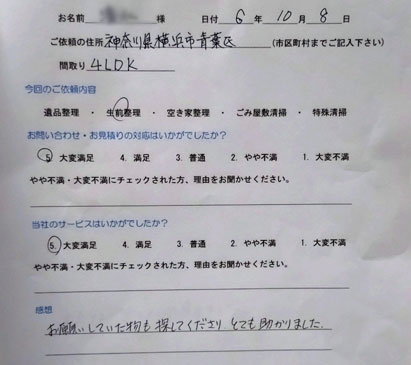 お名前 様 日付 6 年 10 月 8 日
ご依頼の住所 神奈川県横浜市青葉区 (市区町村までご記入下さい)
間取り 4LDK
今回のご依頼内容
遺品整理 ・ 生前整理 ・ 空き家整理 ・ ごみ屋敷清掃 ・ 特殊清掃
お問い合わせ・お見積りの対応はいかがでしたか?
5. 大変満足 4. 満足 3. 普通 2. やや不満 1. 大変不満
やや不満・大変不満にチェックされた方、理由をお聞かせください。
当社のサービスはいかがでしたか?
5. 大変満足 4. 満足 3. 普通 2. やや不満 1. 大変不満
やや不満・大変不満にチェックされた方、理由をお聞かせください。
感想
お願いしていた物も探してくださりとても助かりました.